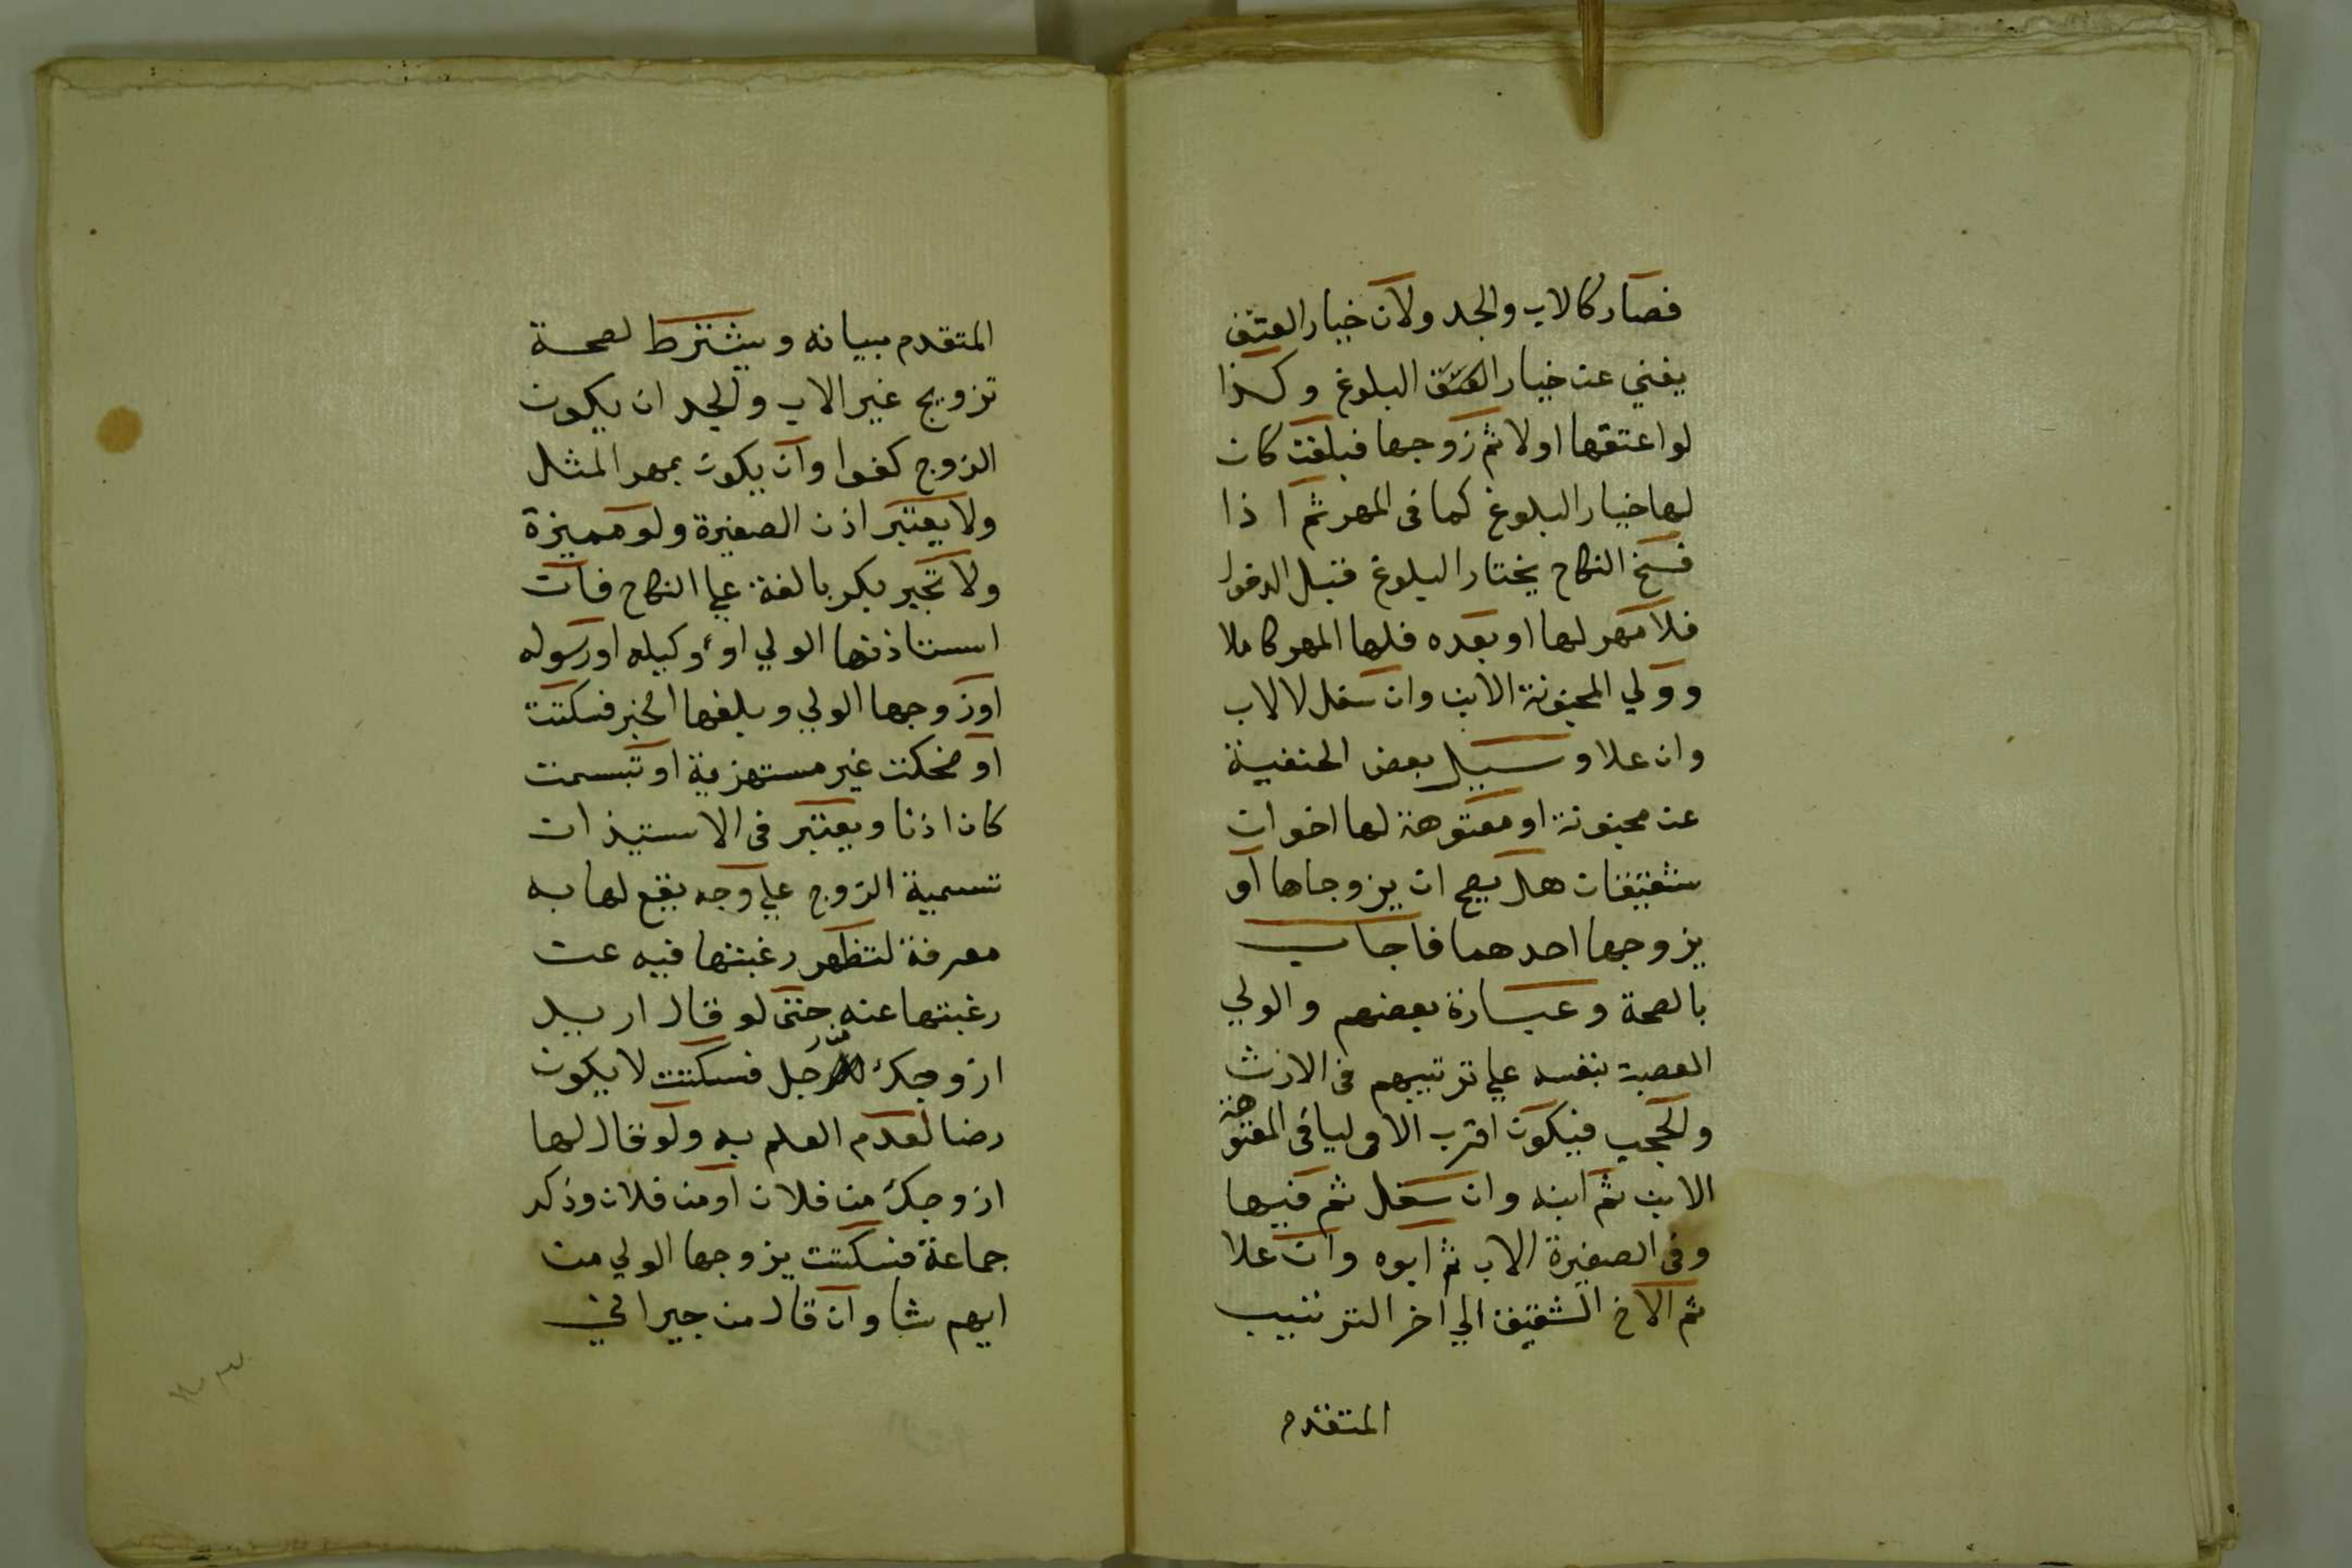 فصار كالاب والجد ولان خيار العتق
يغني عن خيار العتق البلوغ وكذا
لو اعتقها اولا ثم زوجها فبلغت كان
لها خيار البلوغ كما فى المهر ثم اذا
فسخ النكاح بختار البلوغ قبل الدخول
فلا مهر لها او بعده فلها المهر كاملا
وولي المجنونة الابن وان سفل لا الاب
وان علا وسيل بعض الحنفية
عن مجنونة او معتوهة لها اخوان
شقيقان هل يصح ان يزوجاها او
يزوجها احدهما فاجاب
بالصحة وعبارة بعضهم والولي
العصبة بنفسه علي ترتيبهم فى الارث
والحجب فيكون اقرب الاوليا فى المعتوهة
الابن ثم ابنه وان سفل ثم فيها
وفى الصغيرة الاب ثم ابوه وان علا
ثم الاخ الشقيق الي اخر الترتيب
المتقدم
المتقدم بيانه ويشترط لصحة
تزويج غير الاب والجد ان يكون
الزوج كفوا وان يكون بمهر المثل
ولا يعتبر اذن الصغيرة ولو مميزة
ولا تجبر بكر بالغة علي النكاح فان
استاذنها الولي او وكيله او رسوله
او زوجها الولي وبلغها الخبر فسكتت
او ضحكت غير مستهزية او تبسمت
كان اذنا ويعتبر فى الاستيذان
تسمية الزوج علي وجه يقع لها به
معرفة لتظهر رغبتها فيه عن
رغبتها عنه حتى لو قال اريد
ازوجك رجل فسكتت لا يكون
رضا لعدم العلم به ولو قال لها
ازوجك من فلان او من فلان وذكر
جماعة فسكتت يزوجها الولي من
ايهم شا وان قال من جيراني